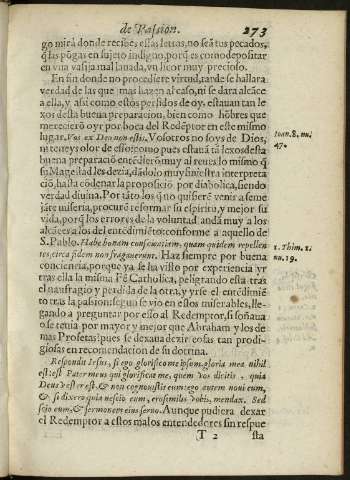 de Passion. 273
go mirà donde recibes essas letras, no seã tus pecados,
q̃ las põgas en sujeto indigno, porq̃ es como depositar
en vna vasija mal lauada, vn licor muy precioso.
En fin donde no procediere virtud, tarde se hallara
verdad de las que mas hazen al caso, ni se dara alcãce
a ella, y assi como estos perfidos de oy, estauan tan le
xos desta buena preparacion, bien como hõbres que
merecierõ oyr por boca del Redẽptor en este mismo
lugar. Vos ex Deo non estis. Vosotros no soys de Dios,
ni teneys olor de esso: como pues estauã tã lexos desta
buena preparació entẽdierõ muy al reues lo mismo q̃
su Magestad les dezia, dãdolo muy siniestra interpreta
ciõ, hasta cõdenar la proposició por diabolica, siendo
verdad diuina. Por tãto los q̃ no quisierẽ venir a seme
jãte miseria, procurẽ reformar su espiritu, y mejor su
vida, porq̃ los errores de la voluntad andã muy a los
alcãces a los del entẽdimiẽto: conforme a aquello de
S. Pablo. Habe bonam conscientiam, quam quidem repellen
tes, circa fidem non fragauerunt. Haz siempre por buena
conciencia, porque ya se ha visto por experiencia yr
tras ella la misma Fè Catholica, peligrando esta tras
el naufragio y perdida de la otra, y irse el entẽdimiẽ
to tras la passion: segun se vio en estos miserables, lle-
gando a preguntar por esso al Redemptor, si soñaua
o se tenia por mayor y mejor que Abraham y los de
mas Profetas: pues se dexaua dezir cosas tan prodi-
giosas en recomendacion de su dotrina.
Respondit Iesus, si ego glorifico me ipsum, gloria mea nihil
est; est Pater meus qui glorificat me, quem vos dicitis, quia
Deus vester est, & non cognouistis eum: ego autem noui eum,
& si dixero quia nescio eum, ero similis vobis, mendax. Sed
scio eum, & sermonem eius seruo. Aunque pudiera dexar
el Redemptor a estos malos entendedores sin respue
T 2 sta
Ioan. 8. nu.
47.
1. Thim. 1.
nu. 19.